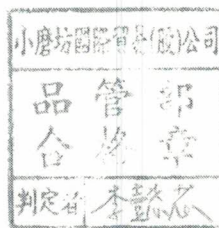 小磨坊國際貿易(股)公司
品管部
合格章
判定者 李懿